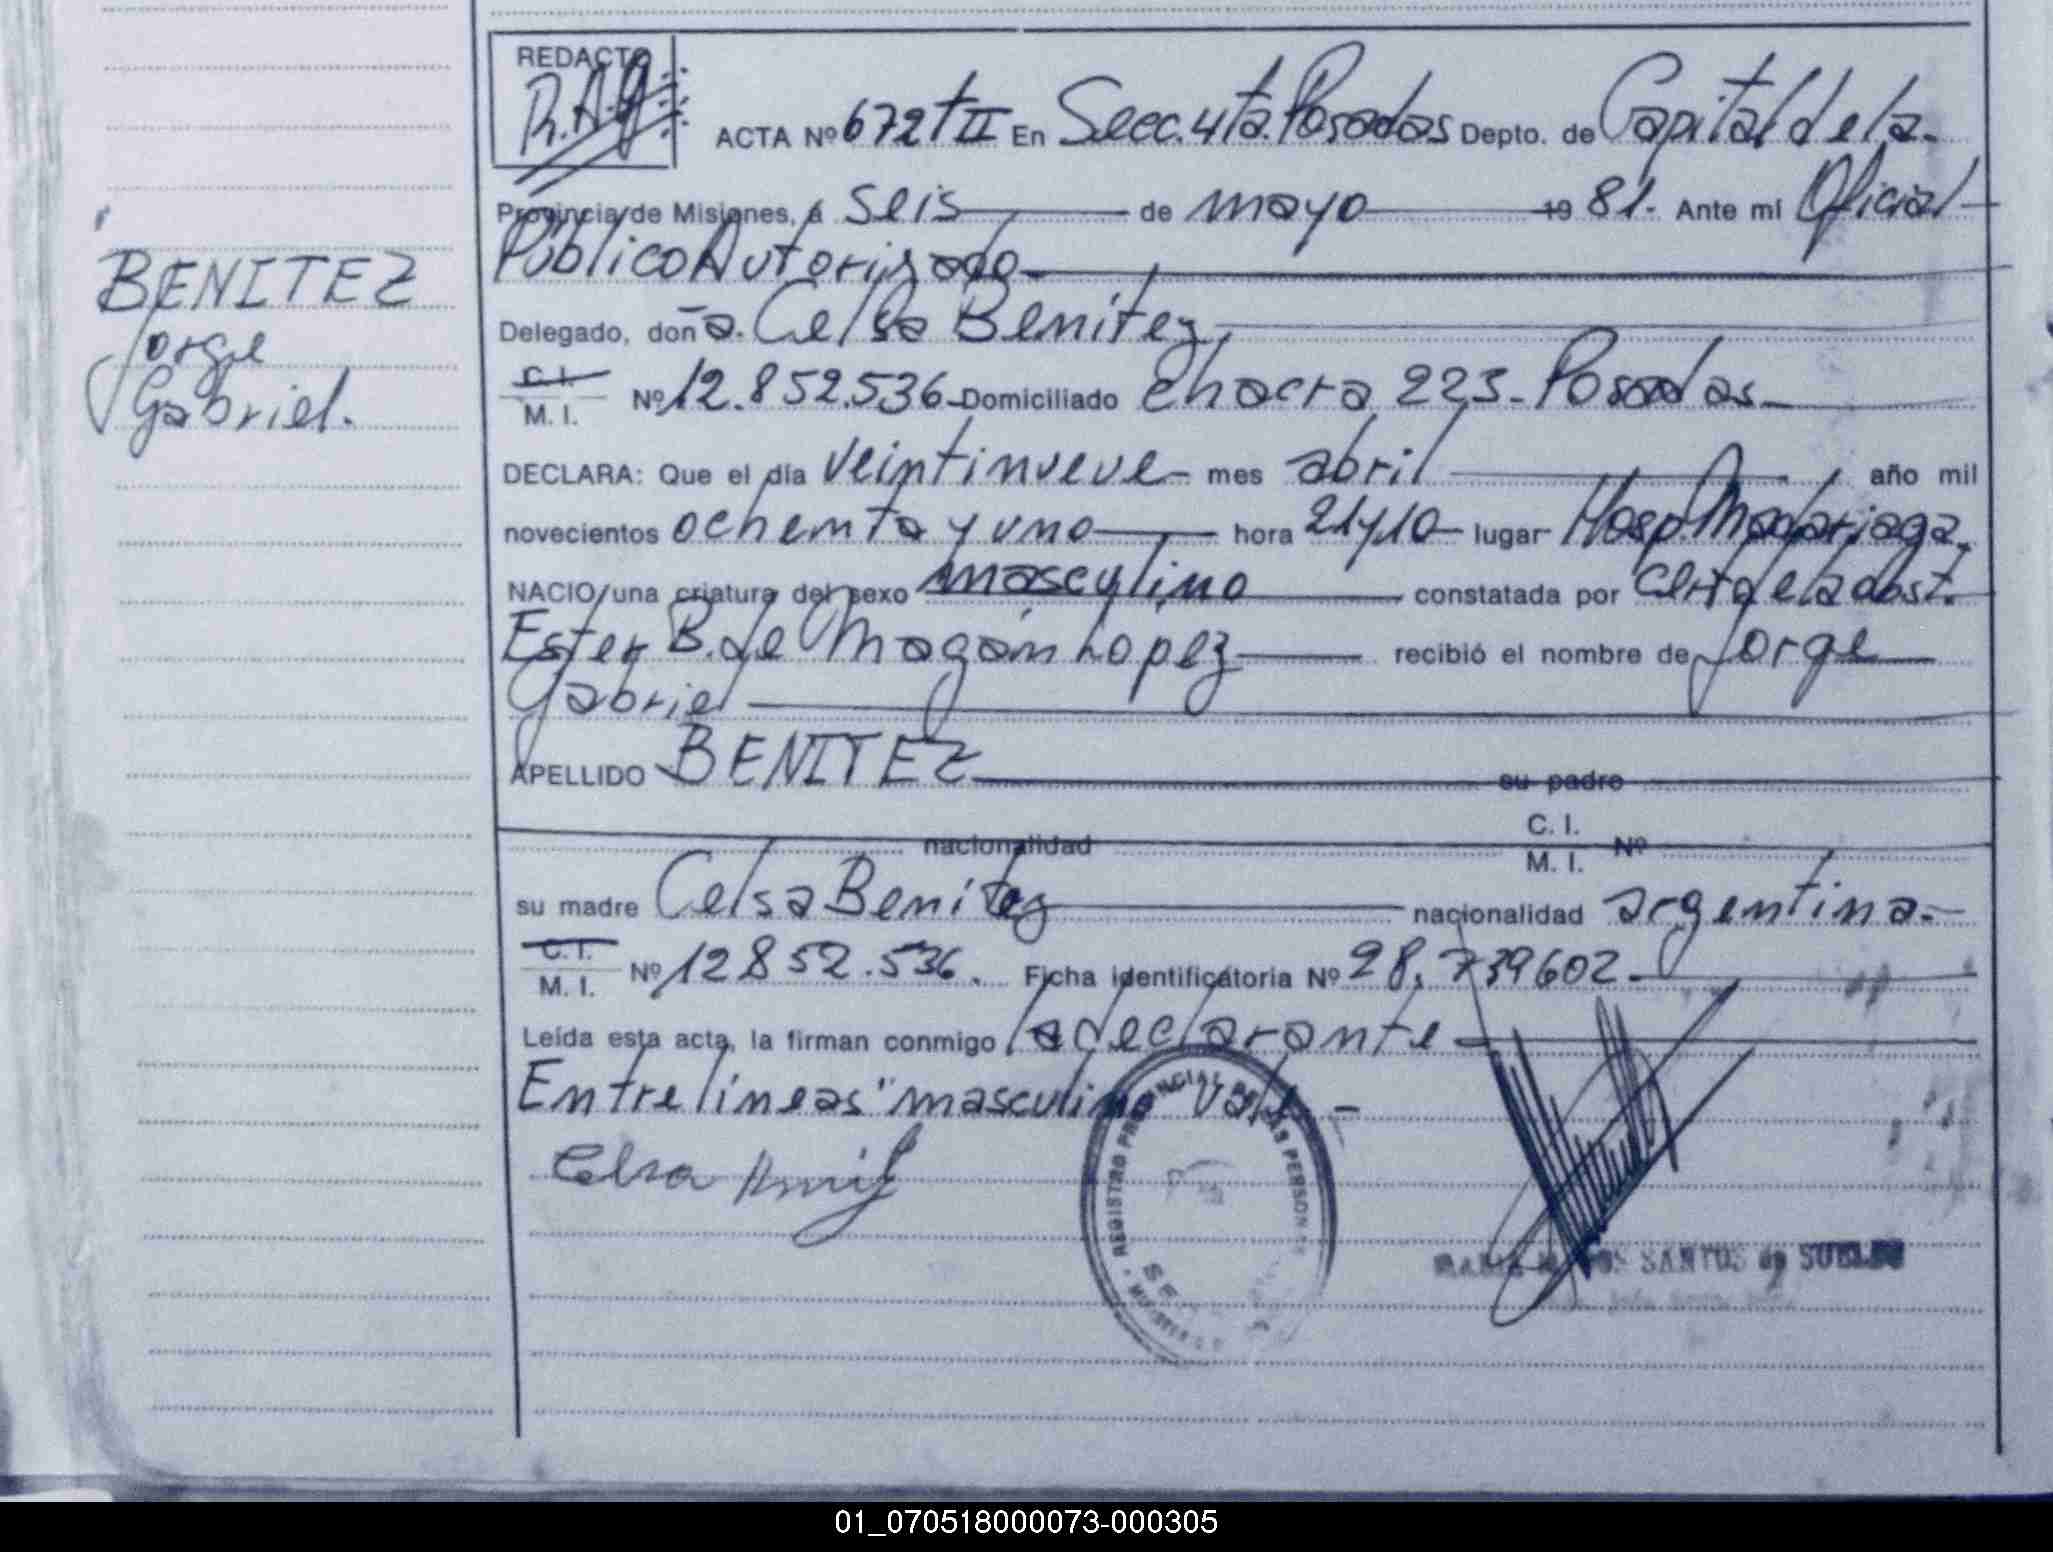 REDACTO
R.A.G
ACTA Nº 672 t II En Secc. 4ta. Posadas Depto. de Capital de la
Provincia de Misiones, a seis de mayo 19 81. Ante mi Oficial
Público Autorizado
BENITEZ
Jorge
Gabriel.
Delegado, don a. Celsa Benitez
C. I.
M. I. Nº 12.852.536 Domiciliado Chacra 223 - Posadas
DECLARA: Que el día veintinueve mes abril año mil
novecientos ochenta y uno hora 21y10 lugar Hosp. Madariaga.
NACIO una criatura del sexo masculino constatada por Cert. de la obst.
Ester B. de Magán Lopez recibió el nombre de Jorge
Gabriel
APELLIDO BENITEZ su padre
nacionalidad C. I. Nº
M. I.
su madre Celsa Benitez nacionalidad argentina.
C. I.
M. I. Nº 12852.536. Ficha identificatoria Nº 28.739602.
Leída esta acta, la firman conmigo la declarante
Entre líneas "masculino" Vale -
REGISTRO PROVINCIAL DE LAS PERSONAS
DOS SANTOS de SUELDO
01_070518000073-000305